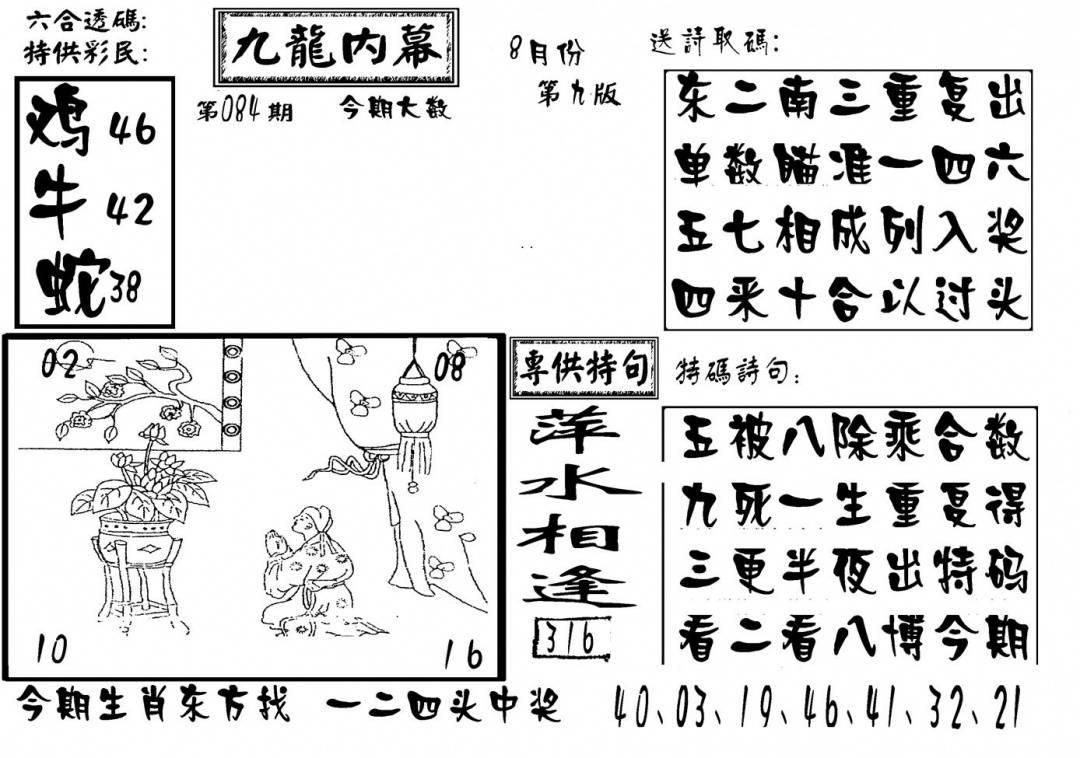 六合透碼:
特供彩民:
鸡 46
牛 42
蛇 38
九龍内幕
第084期 今期大数
8月份
第九版
送詩取碼:
东二南三重复出
单数瞄准一四六
五七相成列入奖
四采十合以过头
02 08
10 16
專供特句
萍水相逢
316
特碼詩句:
五被八除乘合数
九死一生重复得
三更半夜出特码
看二看八博今期
今期生肖东方找 一二四头中奖 40、03、19、46、41、32、21